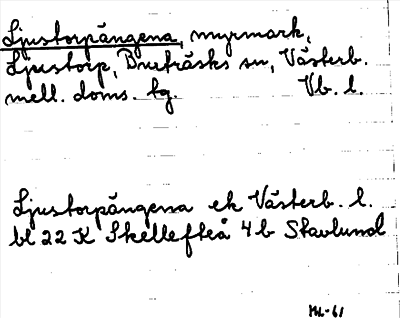 Ljustorpängena, myrmark,
Ljustorp, Burträsks sn, Västerb.
mell. doms. tg. Vb. l.
Ljustorpängena ek Västerb. l.
bl 22 K Skellefteå 4 b Stavlund